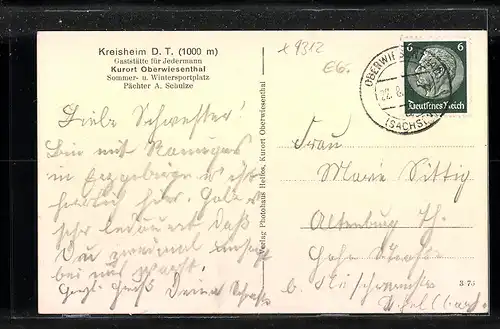 Kreisheim D. T. (1000 m)
Gaststätte für Jedermann
Kurort Oberwiesenthal
Sommer- u. Wintersportplatz
Pächter A. Schulze
x 9312
EG.
6 6
Deutsches Reich
OBERWIESENTHAL
22. 8.
(SACHS)
Liebe Schwester!
Bin mit
im Erzgebirge es ist
herrlich hier. Habe
sehr bedauert daß
Du zweimal umsonst
bei uns warst.
Herzl. Gruß Deine
Verlag Photohaus Helios, Kurort Oberwiesenthal
Frau
Marie Sittig
Altenburg Th.
Hohe Straße
b.
3 75